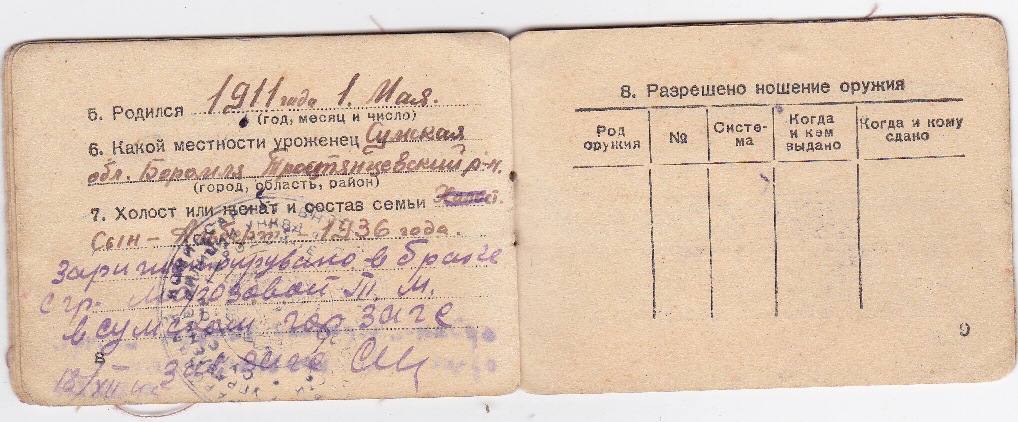 5. Родился 1911 года 1. Мая.
(год, месяц и число)
6. Какой местности уроженец Сумская
обл. Боромля Тростянцовский р-н.
(город, область, район)
7. Холост или женат и состав семьи Холост.
Сын - 1936 года.
в браке
с гр. Морозовой Т. М.
в сумском гор заге
зав загс
8
8. Разрешено ношение оружия
Род оружия
№
Систе-
ма
Когда
и кем
выдано
Когда и кому
сдано
9